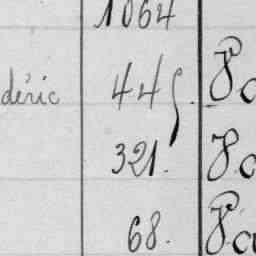 1064
déric 445.
321.
68.